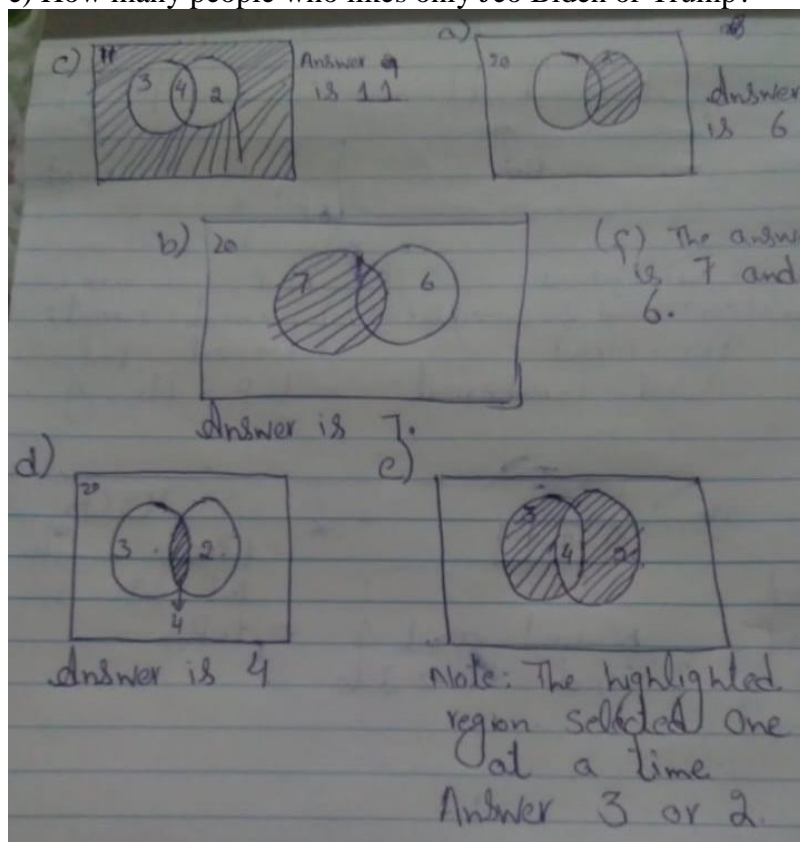 e) How many people who likes only Jeo Biden or Trump?
c)
11
3 4 2
Answer
is 11
a)
20
Answer
is 6
b) 20
7 6
(f) The answ
is 7 and
6.
Answer is 7.
d)
20
3 2
4
Answer is 4
e)
3 4 2
Note: The highlighted
region selected one
at a time
Answer 3 or 2.